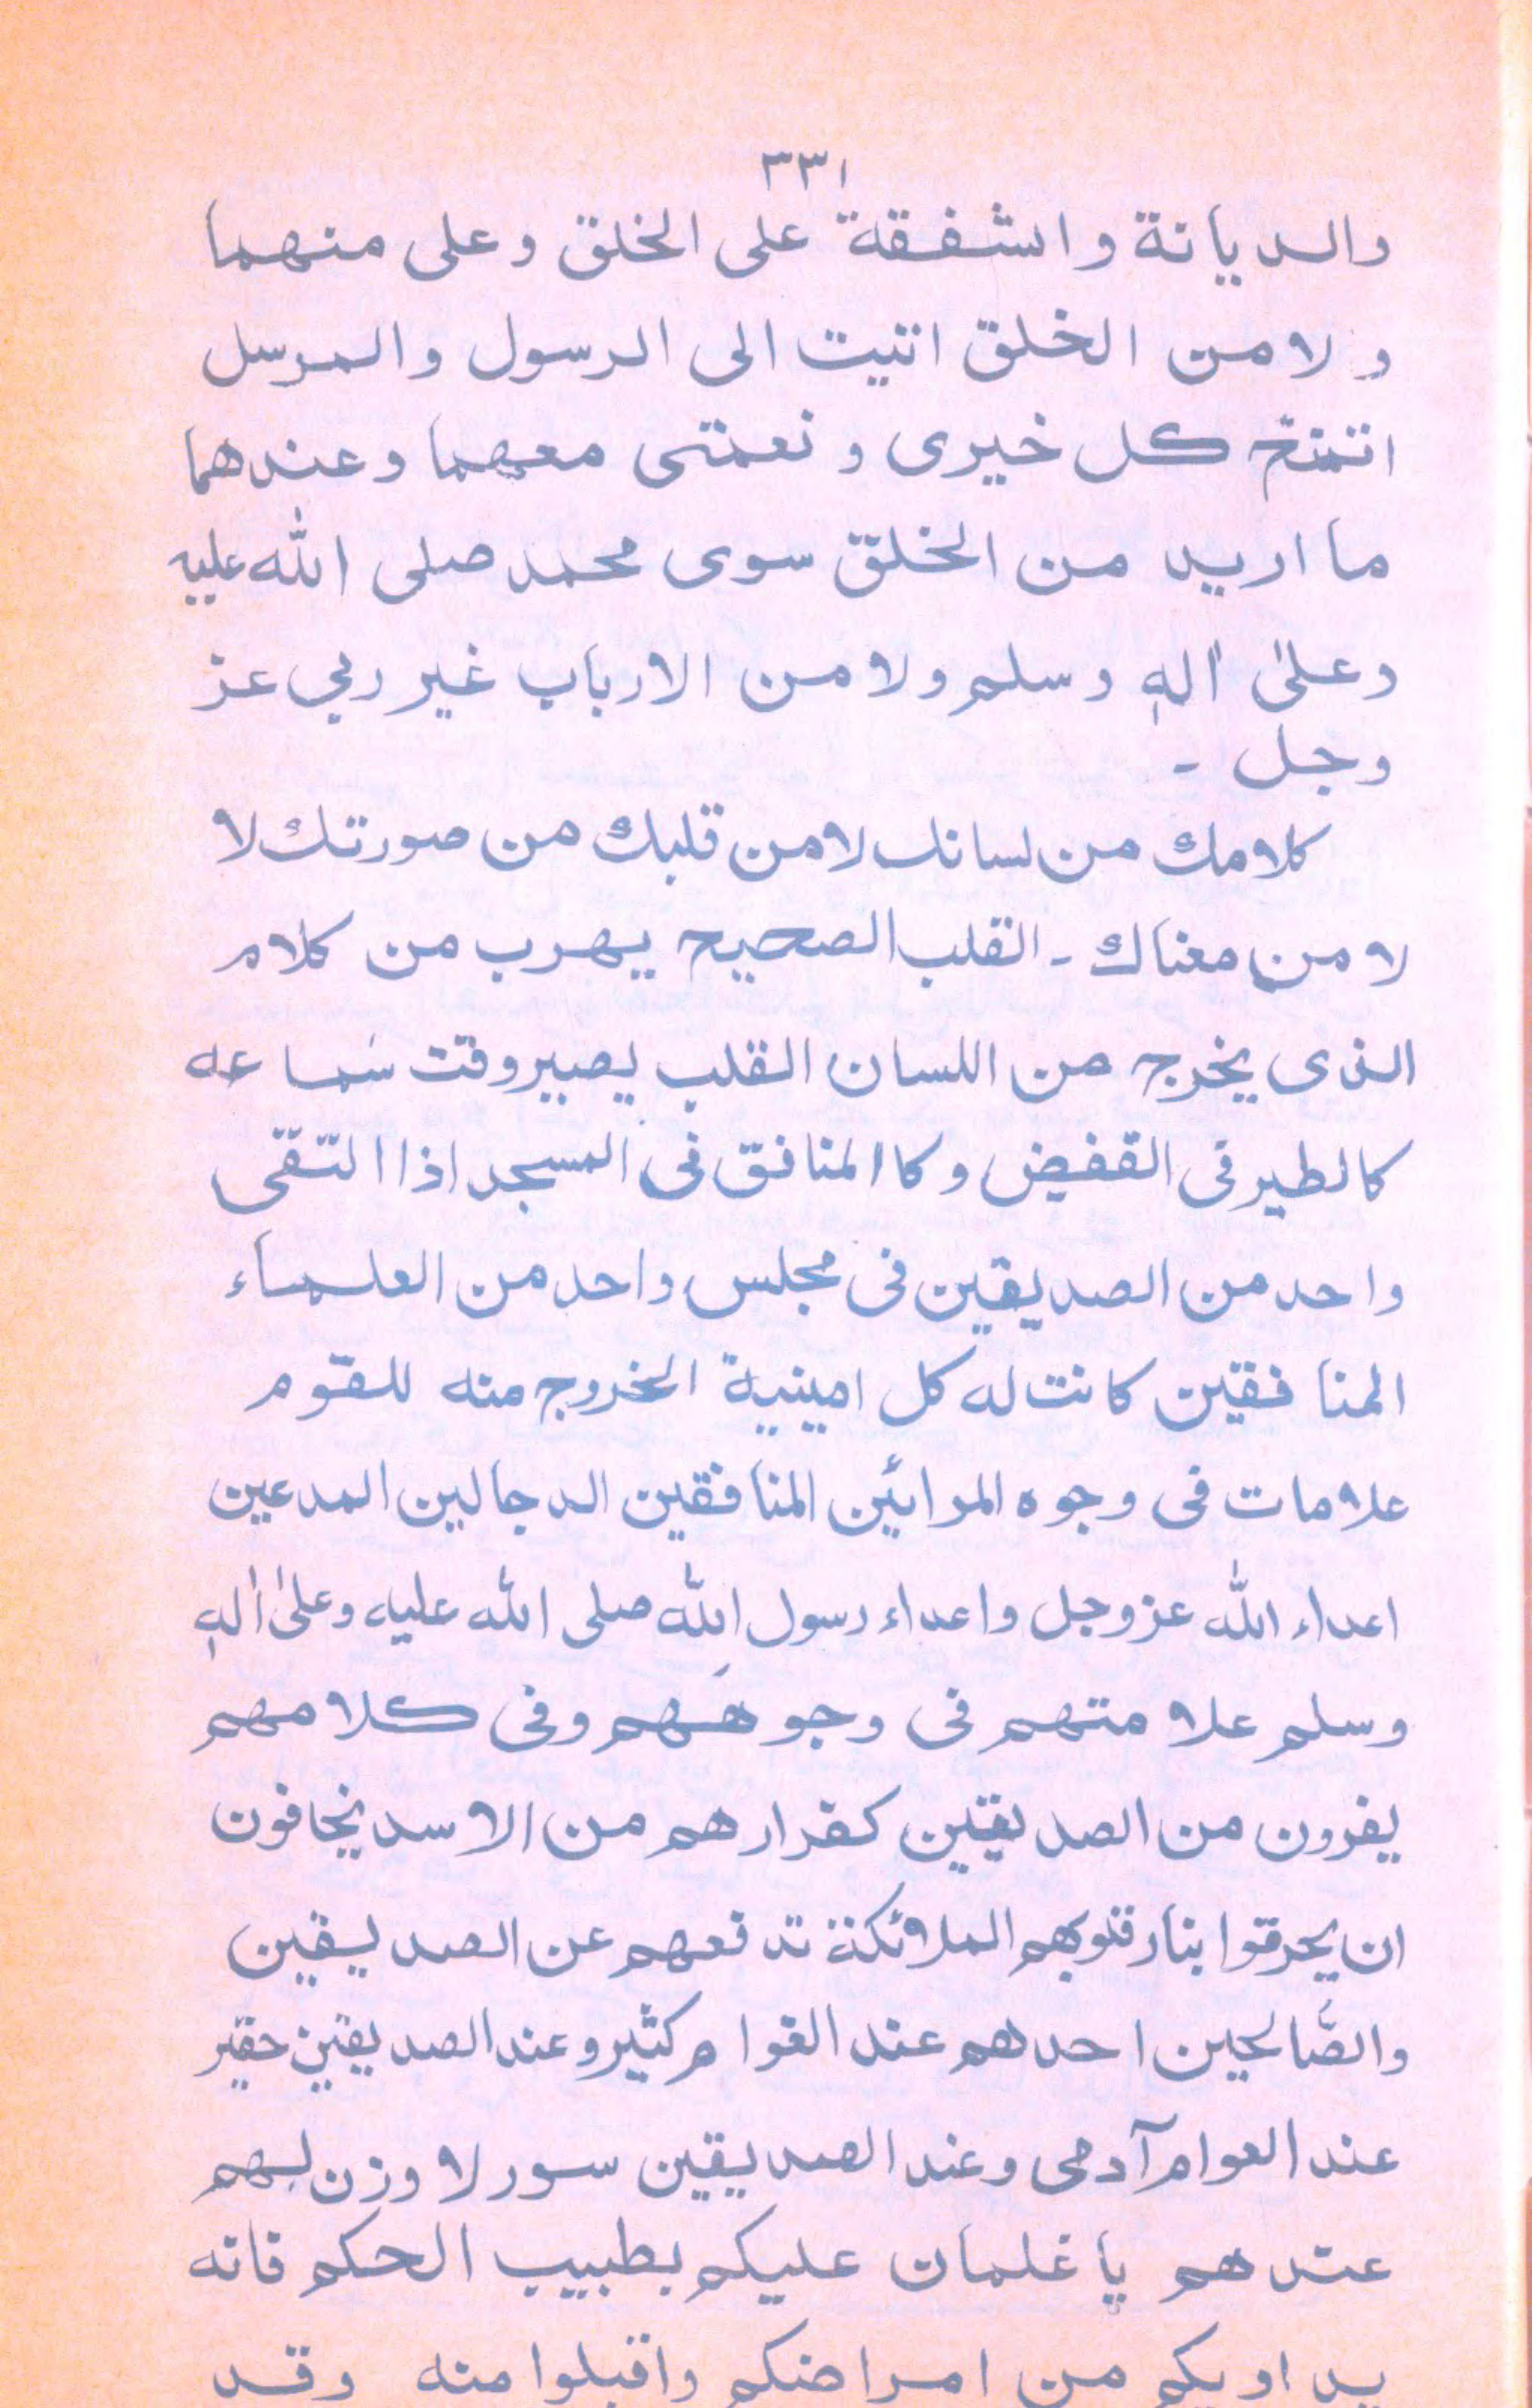 ٣٣١
والديانة والشفقة على الخلق وعلى منهما
ولا من الخلق اتيت الى الرسول والمرسل
كل خيرى و نعمتى معهما وعندهما
ما اريد من الخلق سوى محمد صلى الله عليه
وعلىٰ اٰلهٖ وسلم ولا من الارباب غير ربي عز
وجل -
كلامك من لسانك لا من قلبك من صورتك لا
لا من معناك - القلب الصحيح يهرب من كلام
الذى يخرج من اللسان القلب يصير وقت سَماعه
كالطير فى القفيض وكاالمنافق فى المسجد اذا التقى
واحد من الصديقين فى مجلس واحد من العلماء
المنافقين كانت له كل امينية الخروج منه للقوم
علامات فى وجوه المرائين المنافقين الدجالين المدعين
اعداء الله عز وجل واعداء رسول الله صلى الله عليه وعلىٰ اٰلهٖ
وسلم علامتهم فى وجوههم وفى كلامهم
يفرون من الصديقين كفرارهم من الاسد يخافون
ان يحرقوا بنار قلوبهم الملائكة تدفعهم عن الصديقين
والصّالحين احدهم عند العوام كثير وعند الصديقين حقير
عند العوام آدمى وعند الصديقين سور لا وزن لهم
عندهم يا غلمان عليكم بطبيب الحكم فانه
يداويكم من امراضكم واقبلوا منه وقد